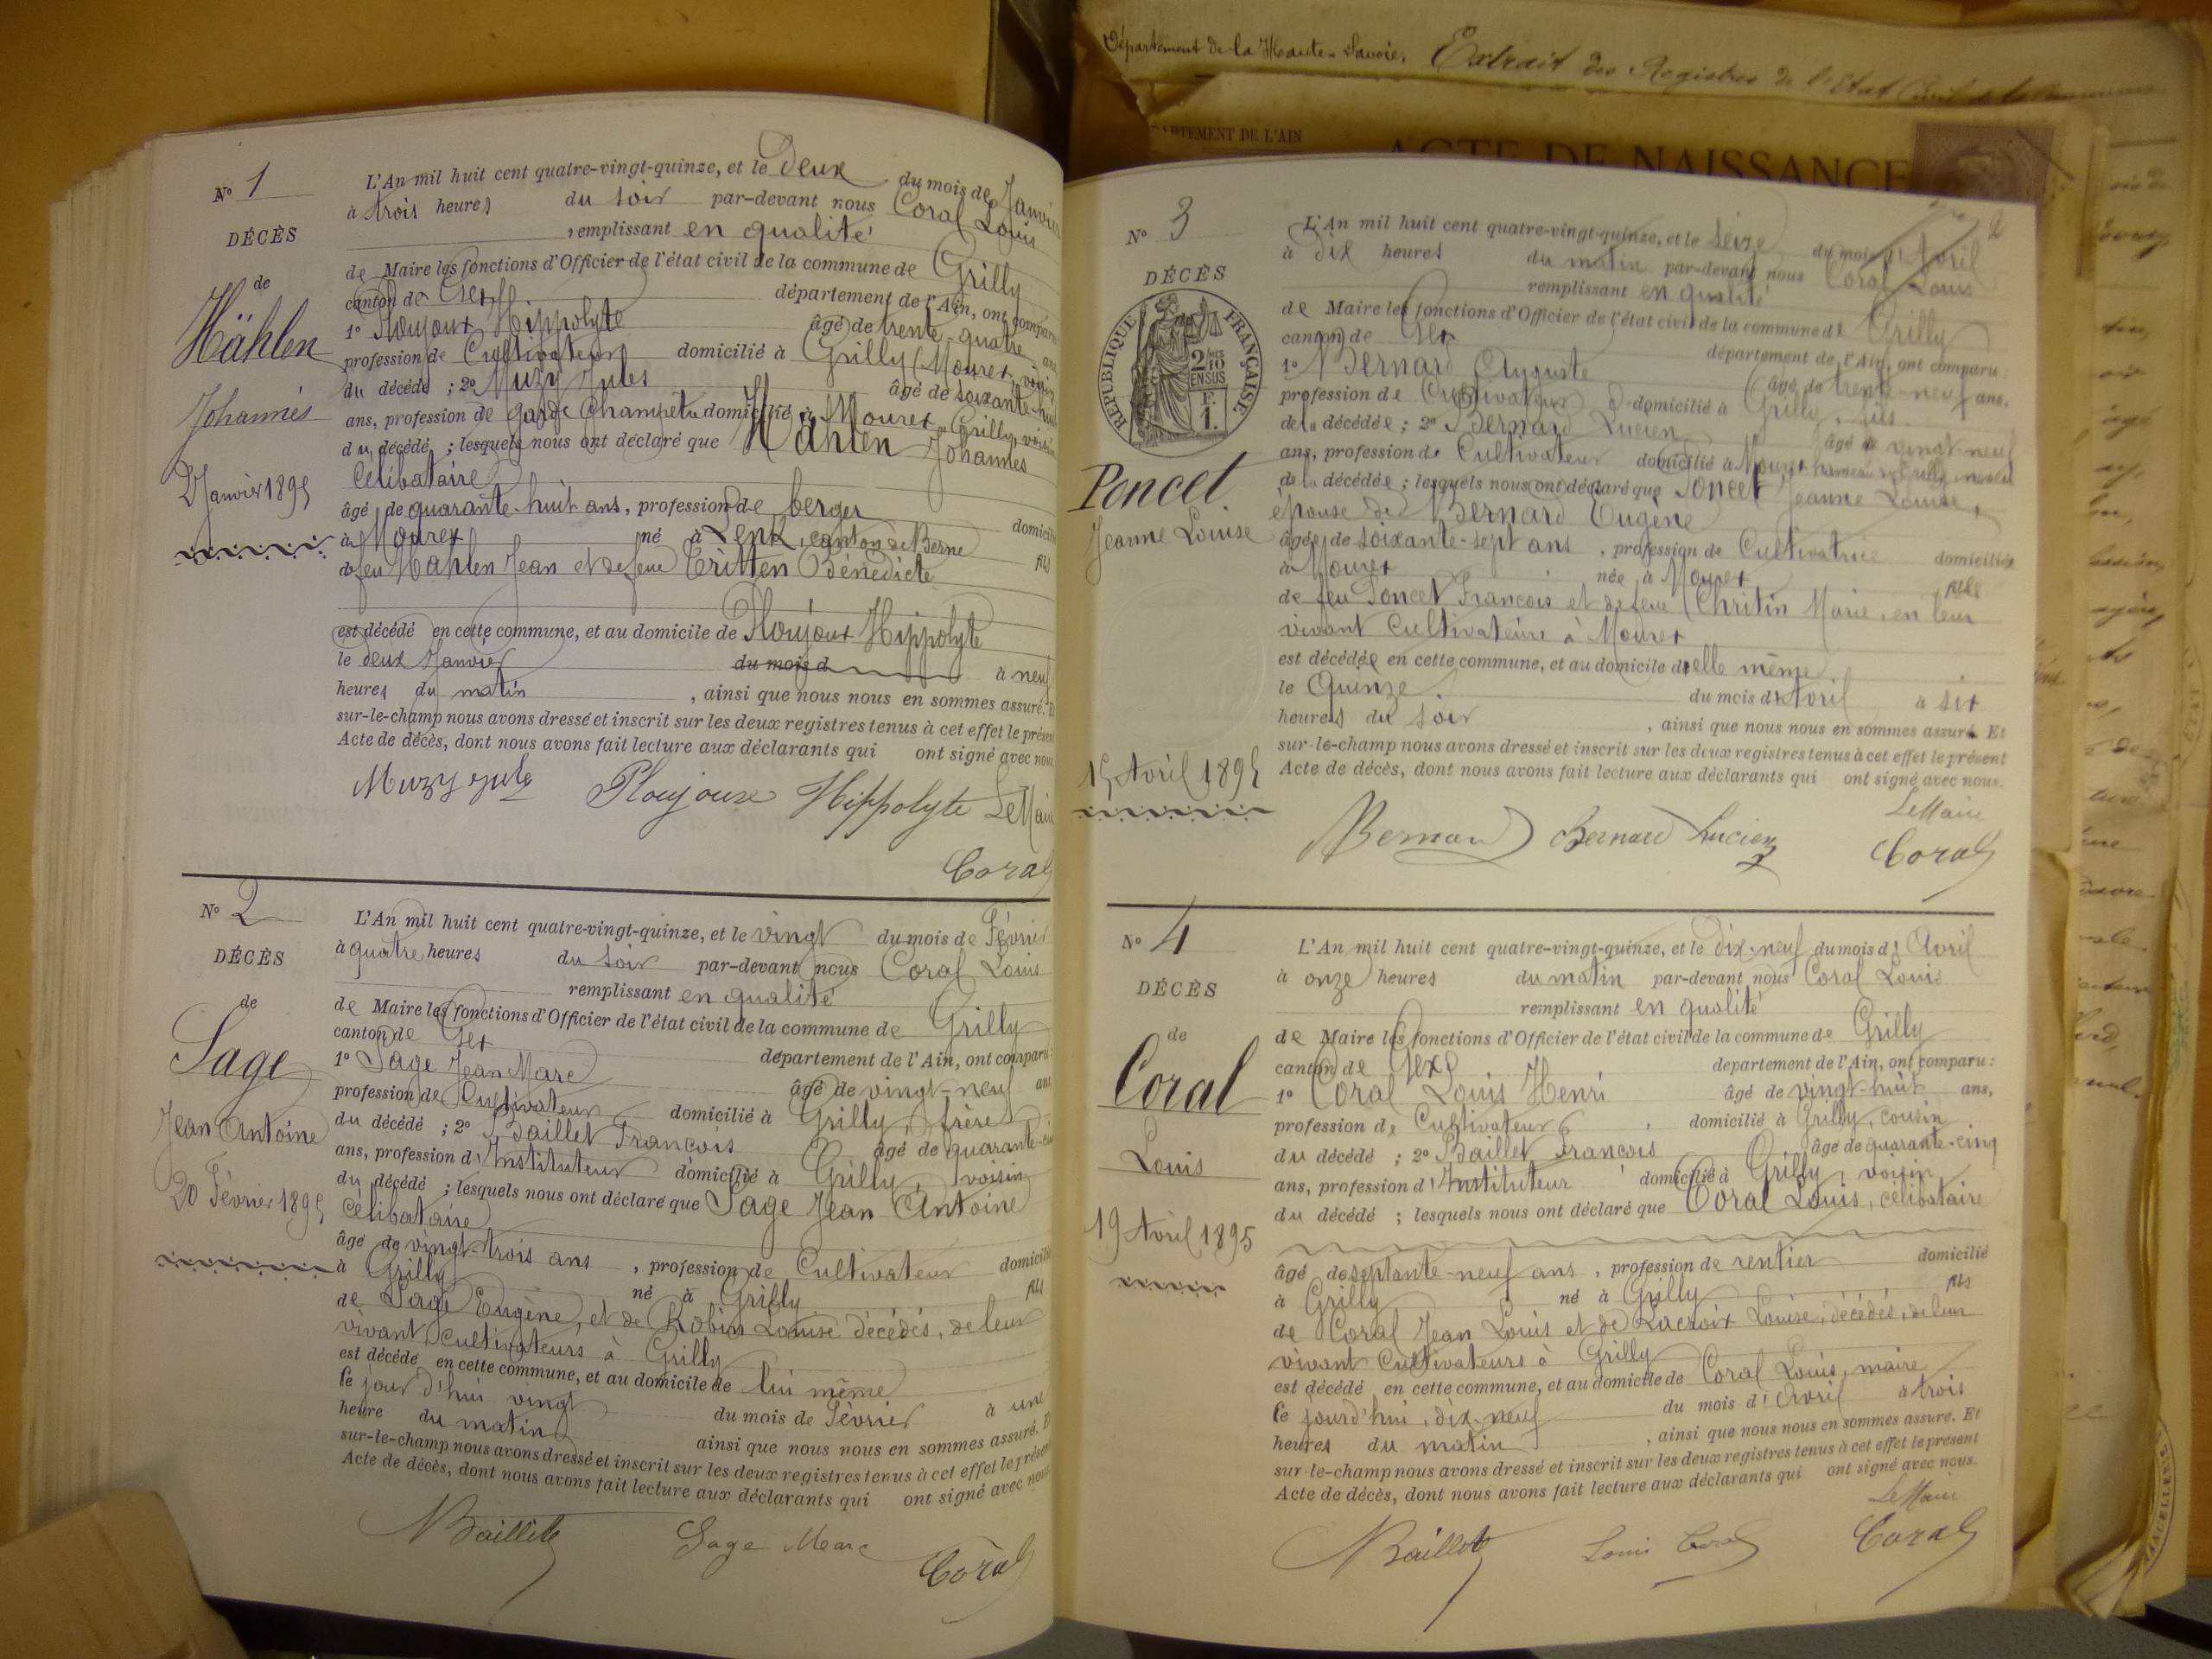 Département de la Haute-Savoie. Extrait des Registres de l'Etat Civil de la
DÉPARTEMENT DE L'AIN
ACTE DE NAISSANCE
N° 1
DÉCÈS
de
Hählen
Johannès
2 Janvier 1895
L'An mil huit cent quatre-vingt-quinze, et le deux du mois de Janvier
à trois heures du soir par-devant nous Coral Louis
remplissant en qualité
de Maire les fonctions d'Officier de l'état civil de la commune de Grilly
canton de Gex département de l'Ain, ont comparu
1° Ploujoux Hippolyte âgé de trente-quatre ans
profession de Cultivateur domicilié à Grilly (Mourex, voisin
du décédé ; 2° Muzy Jules âgé de soixante-huit
ans, profession de garde Champêtre domicilié à Mourex, Grilly, voisin
du décédé ; lesquels nous ont déclaré que Hählen Johannes
Célibataire
âgé de quarante-huit ans, profession de berger domicilié
à Mourex né à Lenk, canton de Berne fils
de feu Hählen Jean et de feue Tritten Bénédicte
est décédé en cette commune, et au domicile de Ploujoux Hippolyte
le deux Janvier du mois d à neuf
heures du matin , ainsi que nous nous en sommes assuré. Et
sur-le-champ nous avons dressé et inscrit sur les deux registres tenus à cet effet le présent
Acte de décès, dont nous avons fait lecture aux déclarants qui ont signé avec nous
Muzy Jules Ploujoux Hippolyte Le Maire
Coral
N° 2
DÉCÈS
de
Sage
Jean Antoine
20 Février 1895
L'An mil huit cent quatre-vingt-quinze, et le vingt du mois de Février
à quatre heures du soir par-devant nous Coral Louis
remplissant en qualité
de Maire les fonctions d'Officier de l'état civil de la commune de Grilly
canton de Gex département de l'Ain, ont comparu
1° Sage Jean Marc âgé de vingt-neuf ans
profession de Cultivateur domicilié à Grilly, frère
du décédé ; 2° Baillet François âgé de quarante-cinq
ans, profession d'Instituteur domicilié à Grilly, voisin
du décédé ; lesquels nous ont déclaré que Sage Jean Antoine
Célibataire
âgé de vingt-trois ans , profession de Cultivateur domicilié
à Grilly né à Grilly fils
de Sage Eugène, et de Robin Louise décédés, de leur
vivant cultivateurs à Grilly
est décédé en cette commune, et au domicile de lui même
le jour d'hui vingt du mois de Février à une
heure du matin ainsi que nous nous en sommes assuré. Et
sur-le-champ nous avons dressé et inscrit sur les deux registres tenus à cet effet le présent
Acte de décès, dont nous avons fait lecture aux déclarants qui ont signé avec nous
Baillet Sage Marc Coral
2
N° 3
DÉCÈS
RÉPUBLIQUE FRANÇAISE
2/10 EN SUS
F. 1.
Poncet
Jeanne Louise
15 Avril 1895
L'An mil huit cent quatre-vingt-quinze, et le seize du mois d'Avril
à dix heures du matin par-devant nous Coral Louis
remplissant en qualité
de Maire les fonctions d'Officier de l'état civil de la commune de Grilly
canton de Gex département de l'Ain, ont comparu :
1° Bernard Auguste âgé de trente-neuf ans,
profession de Cultivateur domicilié à Grilly, fils
de la décédée ; 2° Bernard Lucien âgé de vingt neuf
ans, profession de Cultivateur domicilié à Mourex hameau de Grilly, neveu
de la décédée ; lesquels nous ont déclaré que Poncet Jeanne Louise,
épouse de Bernard Eugène
âgée de soixante-sept ans , profession de Cultivatrice domiciliée
à Mourex née à Mourex fille
de feu Poncet François et de feue Chritin Marie, en leur
vivant cultivateurs à Mourex
est décédée en cette commune, et au domicile d'elle même
le Quinze du mois d'Avril à six
heures du soir , ainsi que nous nous en sommes assuré Et
sur-le-champ nous avons dressé et inscrit sur les deux registres tenus à cet effet le présent
Acte de décès, dont nous avons fait lecture aux déclarants qui ont signé avec nous.
Le Maire
Bernard Bernard Lucien Coral
N° 4
DÉCÈS
de
Coral
Louis
19 Avril 1895
L'An mil huit cent quatre-vingt-quinze, et le dix-neuf du mois d'Avril
à onze heures du matin par-devant nous Coral Louis
remplissant en qualité
de Maire les fonctions d'Officier de l'état civil de la commune de Grilly
canton de Gex département de l'Ain, ont comparu :
1° Coral Louis Henri âgé de vingt-huit ans,
profession de Cultivateur , domicilié à Grilly, cousin
du décédé ; 2° Baillet François âgé de quarante-cinq
ans, profession d'Instituteur domicilié à Grilly, voisin
du décédé ; lesquels nous ont déclaré que Coral Louis, célibataire
âgé de septante-neuf ans , profession de rentier domicilié
à Grilly né à Grilly fils
de Coral Jean Louis et de Lacroix Louise, décédés, de leur
vivant Cultivateurs à Grilly
est décédé en cette commune, et au domicile de Coral Louis, maire
le jourd'hui, dix-neuf du mois d'Avril à trois
heures du matin , ainsi que nous nous en sommes assuré. Et
sur-le-champ nous avons dressé et inscrit sur les deux registres tenus à cet effet le présent
Acte de décès, dont nous avons fait lecture aux déclarants qui ont signé avec nous.
Le Maire
Baillet Louis Coral Coral